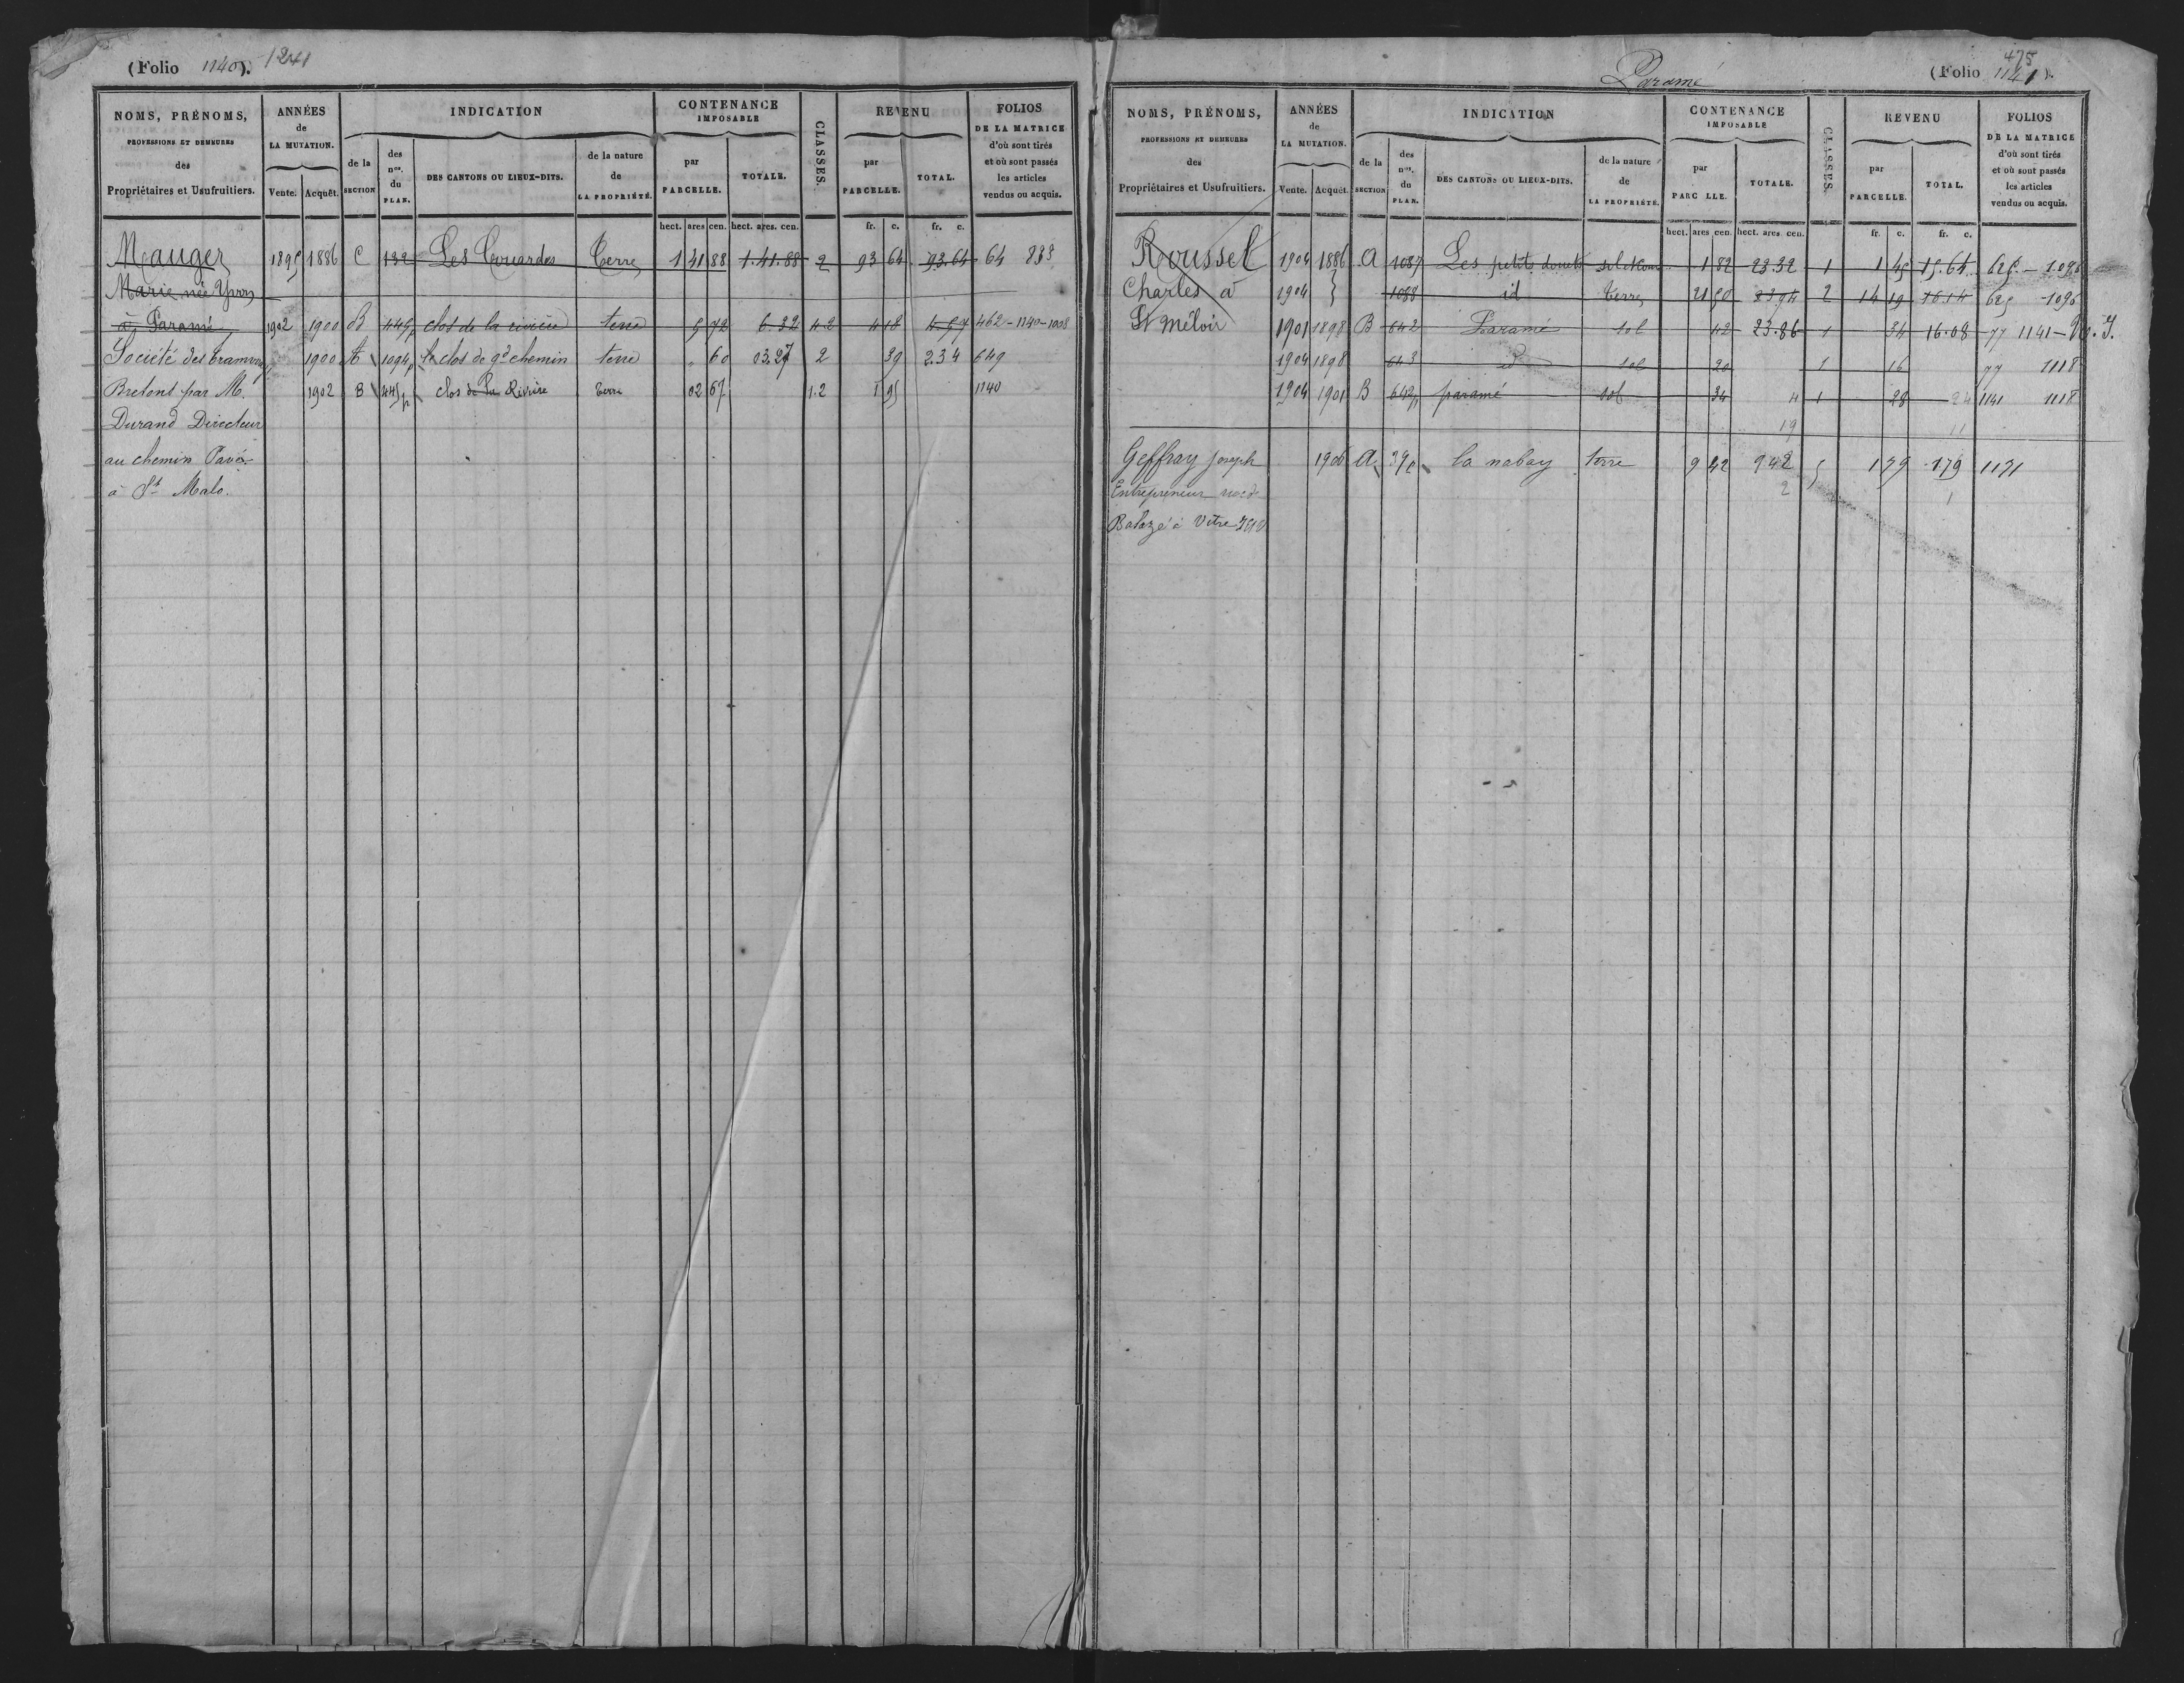 (Folio 1140). 1241
NOMS, PRÉNOMS, PROFESSIONS ET DEMEURES des Propriétaires et Usufruitiers.
ANNÉES de LA MUTATION. Vente. Acquêt.
INDICATION de la SECTION des nos. du PLAN. DES CANTONS OU LIEUX-DITS. de la nature de LA PROPRIÉTÉ.
CONTENANCE IMPOSABLE par PARCELLE. TOTALE.
CLASSES.
REVENU par PARCELLE. TOTAL.
FOLIOS DE LA MATRICE d'où sont tirés et où sont passés les articles vendus ou acquis.
hect. ares cen. hect. ares. cen. fr. c. fr. c.
Mauger 1895 1886 C 132 Les Couardes Terre 1 41 88 1.41.88 2 93 64 93.64 64 883
Marie née
à Paramé 1902 1900 B 445p clos de la rivière terre 5 72 6.32 4.2 4 18 4.57 462-1140-1008
Société des tramways 1900 A 1094p le clos de gd chemin terre " 60 03.27 2 39 2.34 649
Bretons par M. 1902 B 445p clos de la Rivière terre 02 67 1.2 1 95 1140
Durand Directeur
au chemin Pavé
à St Malo.
Paramé
475
(Folio 1141).
NOMS, PRÉNOMS, PROFESSIONS ET DEMEURES des Propriétaires et Usufruitiers.
ANNÉES de LA MUTATION. Vente. Acquêt.
INDICATION de la SECTION des nos. du PLAN. DES CANTONS OU LIEUX-DITS. de la nature de LA PROPRIÉTÉ.
CONTENANCE IMPOSABLE par PARC LLE. TOTALE.
CLASSES.
REVENU par PARCELLE. TOTAL.
FOLIOS DE LA MATRICE d'où sont tirés et où sont passés les articles vendus ou acquis.
hect. ares cen. hect. ares cen. fr. c. fr. c.
Roussel 1904 1886 A 1087 Les petits douets sol et cour 1 82 23.32 1 1 45 15.64 625 - 1096
Charles à 1904 } 1088 id terre 21 50 23.74 2 14 19 16.14 625 1096
St Méloir 1901 1898 B 642 Paramé sol 42 23.86 1 34 16.08 77 1141
1904 1898 643 id sol 20 1 16 77 1118
1904 1901 B 642p paramé sol 34 4 1 28 24 1141 1118
19 11
Geffray Joseph 1906 A 39 la nabay terre 9 42 9 42 5 1 79 1.79 1131
Entrepreneur 2 1
Balazé à Vitré